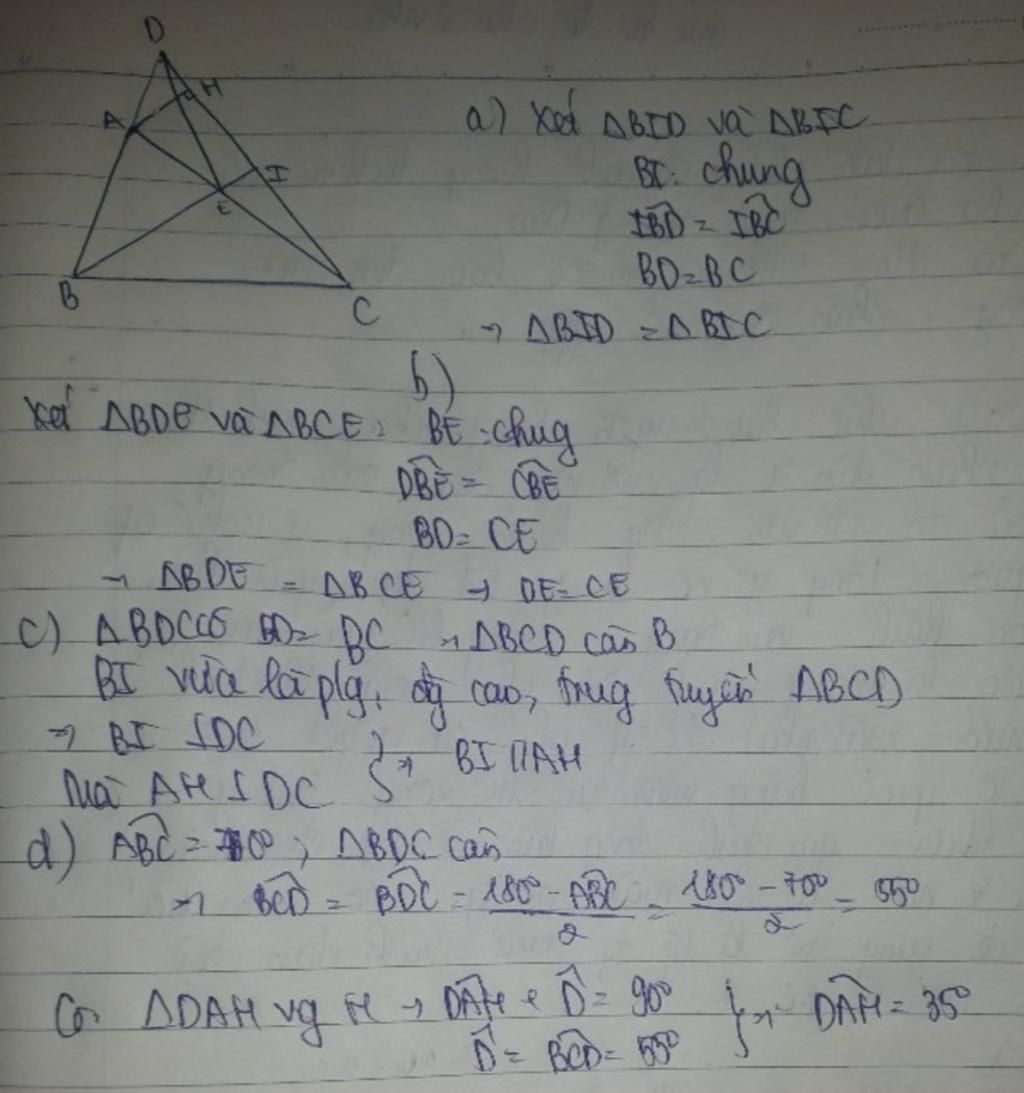 D
H
A
I
E
B
C
a) Xét ΔBID và ΔBIC
BI: chung
IB̂D = IB̂C
BD = BC
→ ΔBID = ΔBIC
b)
Xét ΔBDE và ΔBCE: BE: chug
DB̂E = CB̂E
BD = CE
→ ΔBDE = ΔBCE → DE = CE
c) ΔBDC có BD = BC → ΔBCD cân B
BI vừa là plg, đg cao, trug tuyến ΔBCD
→ BI ⊥ DC
Mà AH ⊥ DC } → BI // AH
d) AB̂C = 70°, ΔBDC cân
→ BĈD = BD̂C = (180° - AB̂C)/2 = (180° - 70°)/2 = 55°
Có ΔDAH vg H → DÂH + D̂ = 90°
D̂ = BĈD = 55° } → DÂH = 35°